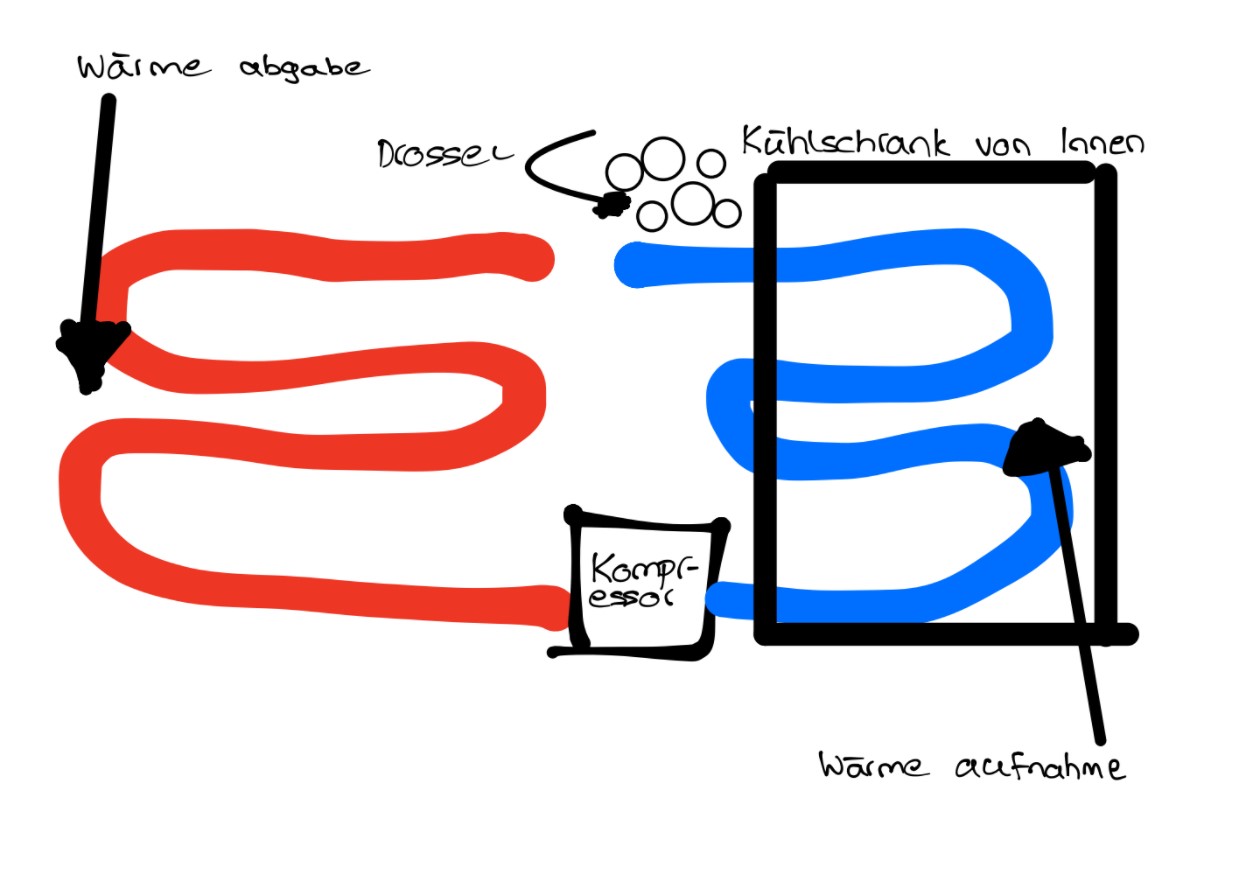 Wärme abgabe
Drossel
Kühlschrank von Innen
Kompr-
essor
Wärme aufnahme